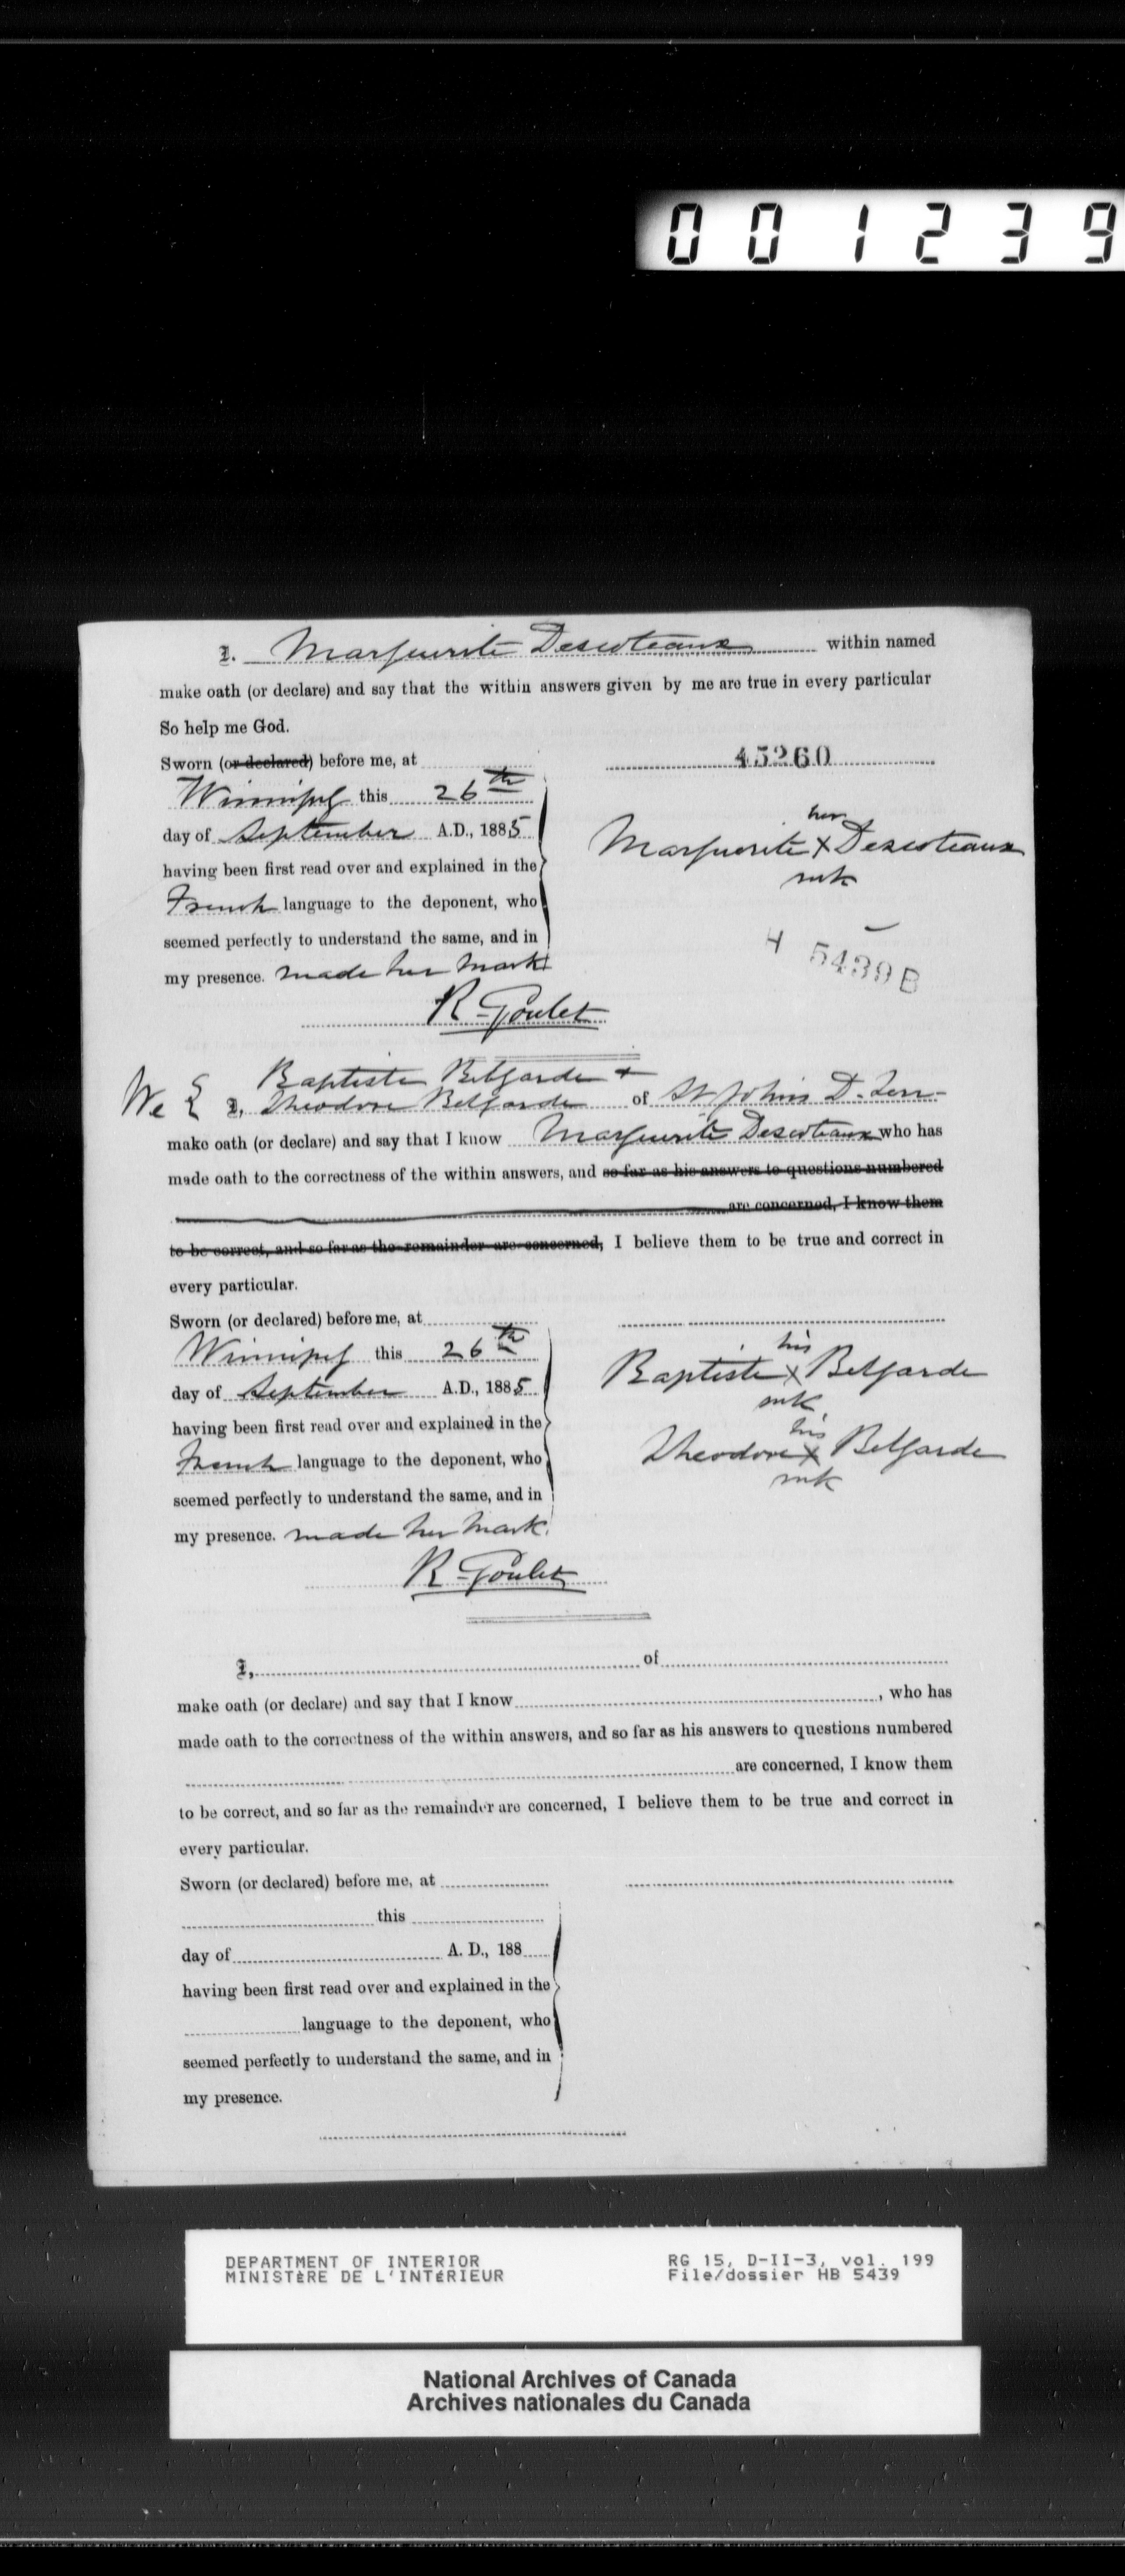 001239
I. Marguerite Descoteaux within named
make oath (or declare) and say that the within answers given by me are true in every particular
So help me God.
Sworn (or declared) before me, at
45260
Winnipeg this 26th
day of September A.D., 1885
having been first read over and explained in the
French language to the deponent, who
seemed perfectly to understand the same, and in
my presence. made her mark
her
Marguerite X Descoteaux
mk
H 5439 B
R. Goulet
Baptiste Belgarde +
We & I, Theodore Belgarde of St Johns D. Terr-
make oath (or declare) and say that I know Marguerite Descoteaux who has
made oath to the correctness of the within answers, and so far as his answers to questions numbered
are concerned, I know them
to be correct, and so far as the remainder are concerned, I believe them to be true and correct in
every particular.
Sworn (or declared) before me, at
Winnipeg this 26th
day of September A.D., 1885
having been first read over and explained in the
French language to the deponent, who
seemed perfectly to understand the same, and in
my presence. made her mark.
his
Baptiste X Belgarde
mk
his
Theodore X Belgarde
mk
R. Goulet
I, of
make oath (or declare) and say that I know , who has
made oath to the correctness of the within answers, and so far as his answers to questions numbered
are concerned, I know them
to be correct, and so far as the remainder are concerned, I believe them to be true and correct in
every particular.
Sworn (or declared) before me, at
this
day of A. D., 188
having been first read over and explained in the
language to the deponent, who
seemed perfectly to understand the same, and in
my presence.
DEPARTMENT OF INTERIOR
MINISTÈRE DE L'INTÉRIEUR
RG 15, D-II-3, vol. 199
File/dossier HB 5439
National Archives of Canada
Archives nationales du Canada